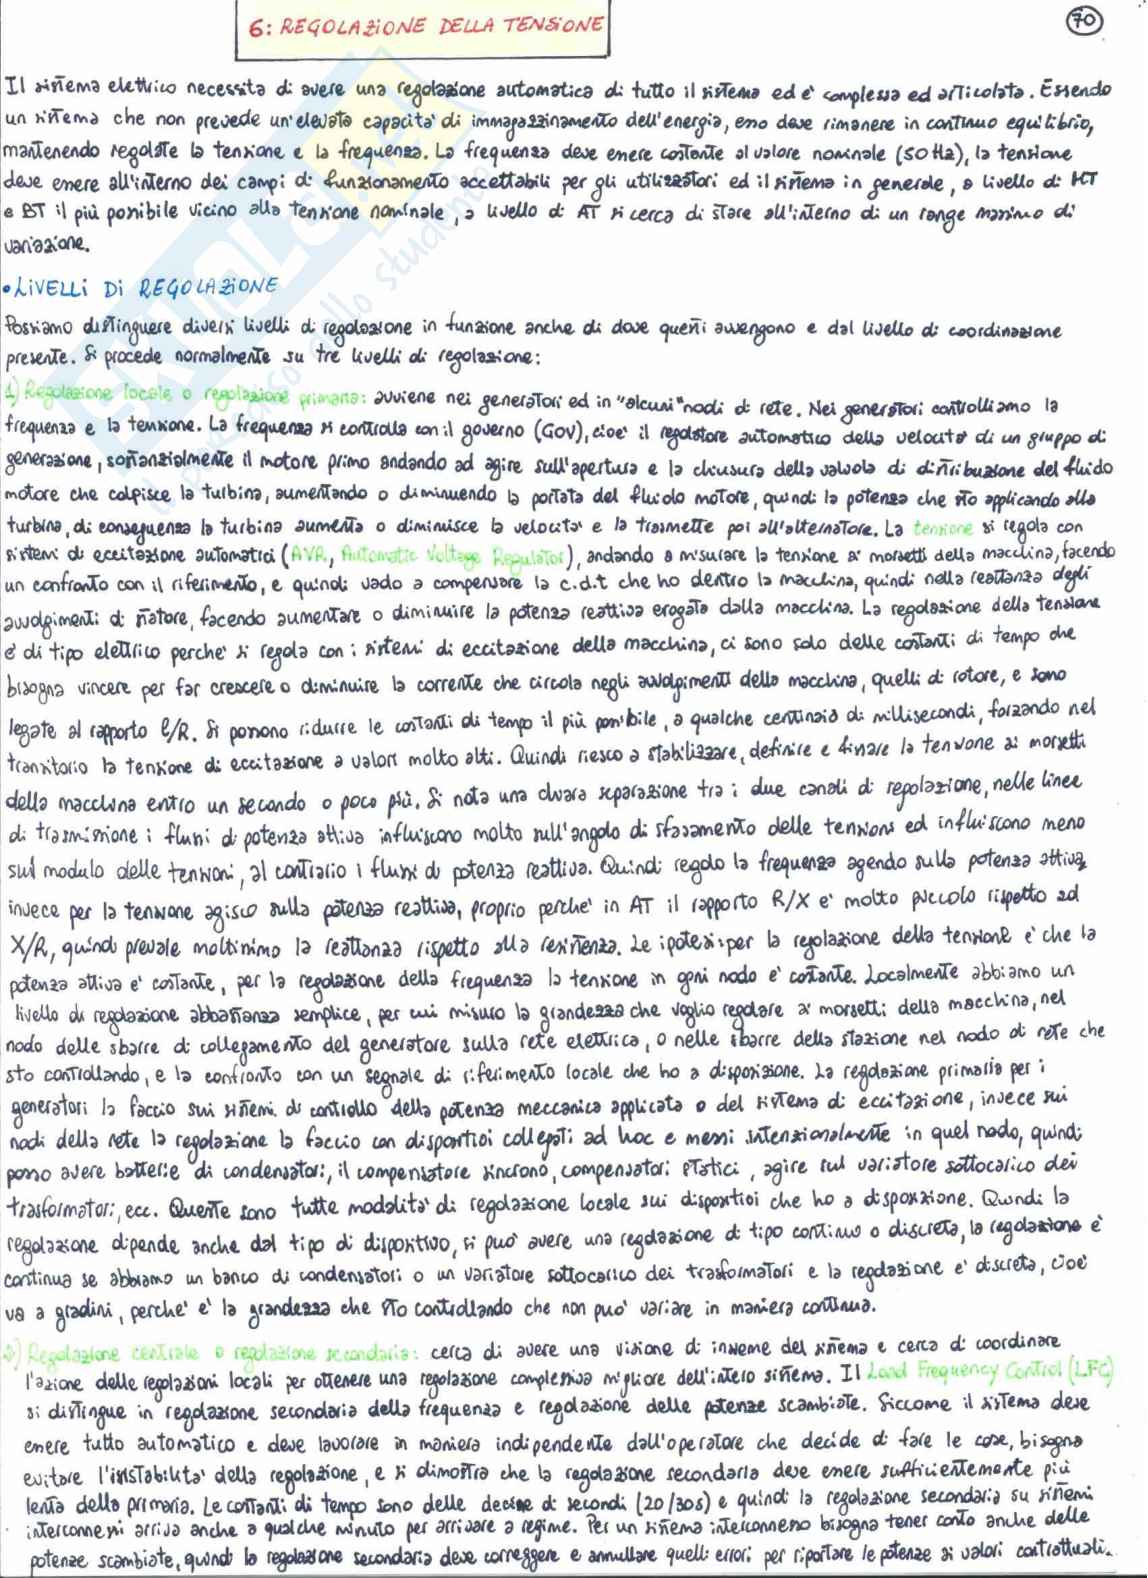 6: REGOLAZIONE DELLA TENSIONE
70
Il sistema elettrico necessita di avere una regolazione automatica di tutto il sistema ed è complessa ed articolata. Essendo
un sistema che non prevede un'elevata capacità di immagazzinamento dell'energia, esso deve rimanere in continuo equilibrio,
mantenendo regolate la tensione e la frequenza. La frequenza deve essere costante al valore nominale (50 Hz), la tensione
deve essere all'interno dei campi di funzionamento accettabili per gli utilizzatori ed il sistema in generale, a livello di MT
e BT il più possibile vicino alla tensione nominale, a livello di AT si cerca di stare all'interno di un range massimo di
variazione.
• LIVELLI DI REGOLAZIONE
Possiamo distinguere diversi livelli di regolazione in funzione anche di dove questi avvengono e dal livello di coordinazione
presente. Si procede normalmente su tre livelli di regolazione:
1) Regolazione locale o regolazione primaria: avviene nei generatori ed in "alcuni" nodi di rete. Nei generatori controlliamo la
frequenza e la tensione. La frequenza si controlla con il governo (GOV), cioè il regolatore automatico della velocità di un gruppo di
generazione, sostanzialmente il motore primo andando ad agire sull'apertura e la chiusura della valvola di distribuzione del fluido
motore che colpisce la turbina, aumentando o diminuendo la portata del fluido motore, quindi la potenza che sto applicando alla
turbina, di conseguenza la turbina aumenta o diminuisce la velocità e la trasmette poi all'alternatore. La tensione si regola con
sistemi di eccitazione automatici (AVR, Automatic Voltage Regulator), andando a misurare la tensione ai morsetti della macchina, facendo
un confronto con il riferimento, e quindi vado a compensare la c.d.t che ho dentro la macchina, quindi nella reattanza degli
avvolgimenti di statore, facendo aumentare o diminuire la potenza reattiva erogata dalla macchina. La regolazione della tensione
è di tipo elettrico perchè si regola con i sistemi di eccitazione della macchina, ci sono solo delle costanti di tempo che
bisogna vincere per far crescere o diminuire la corrente che circola negli avvolgimenti della macchina, quelli di rotore, e sono
legate al rapporto l/R. Si possono ridurre le costanti di tempo il più possibile, a qualche centinaio di millisecondi, forzando nel
transitorio la tensione di eccitazione a valori molto alti. Quindi riesco a stabilizzare, definire e fissare la tensione ai morsetti
della macchina entro un secondo o poco più. Si nota una chiara separazione tra i due canali di regolazione, nelle linee
di trasmissione i flussi di potenza attiva influiscono molto sull'angolo di sfasamento delle tensioni ed influiscono meno
sul modulo delle tensioni, al contrario i flussi di potenza reattiva. Quindi regolo la frequenza agendo sulla potenza attiva,
invece per la tensione agisco sulla potenza reattiva, proprio perchè in AT il rapporto R/X è molto piccolo rispetto ad
X/R, quindi prevale moltissimo la reattanza rispetto alla resistenza. Le ipotesi: per la regolazione della tensione è che la
potenza attiva è costante, per la regolazione della frequenza la tensione in ogni nodo è costante. Localmente abbiamo un
livello di regolazione abbastanza semplice, per cui misuro la grandezza che voglio regolare ai morsetti della macchina, nel
nodo delle sbarre di collegamento del generatore sulla rete elettrica, o nelle sbarre della stazione nel nodo di rete che
sto controllando, e la confronto con un segnale di riferimento locale che ho a disposizione. La regolazione primaria per i
generatori la faccio sui sistemi di controllo della potenza meccanica applicata o del sistema di eccitazione, invece sui
nodi della rete la regolazione la faccio con dispositivi collegati ad hoc e messi intenzionalmente in quel nodo, quindi
posso avere batterie di condensatori, il compensatore sincrono, compensatori statici, agire sul variatore sottocarico dei
trasformatori, ecc. Queste sono tutte modalità di regolazione locale sui dispositivi che ho a disposizione. Quindi la
regolazione dipende anche dal tipo di dispositivo, si può avere una regolazione di tipo continuo o discreta, la regolazione è
continua se abbiamo un banco di condensatori o un variatore sottocarico dei trasformatori e la regolazione è discreta, cioè
va a gradini, perchè è la grandezza che sto controllando che non può variare in maniera continua.
2) Regolazione centrale o regolazione secondaria: cerca di avere una visione di insieme del sistema e cerca di coordinare
l'azione delle regolazioni locali per ottenere una regolazione complessiva migliore dell'intero sistema. Il Load Frequency Control (LFC)
si distingue in regolazione secondaria della frequenza e regolazione delle potenze scambiate. Siccome il sistema deve
essere tutto automatico e deve lavorare in maniera indipendente dall'operatore che decide di fare le cose, bisogna
evitare l'instabilità della regolazione, e si dimostra che la regolazione secondaria deve essere sufficientemente più
lenta della primaria. Le costanti di tempo sono delle decine di secondi (20/30s) e quindi la regolazione secondaria su sistemi
interconnessi arriva anche a qualche minuto per arrivare a regime. Per un sistema interconnesso bisogna tener conto anche delle
potenze scambiate, quindi la regolazione secondaria deve correggere e annullare quelli errori per riportare le potenze ai valori contrattuali.
SKUOLA.net
il paradiso dello studente